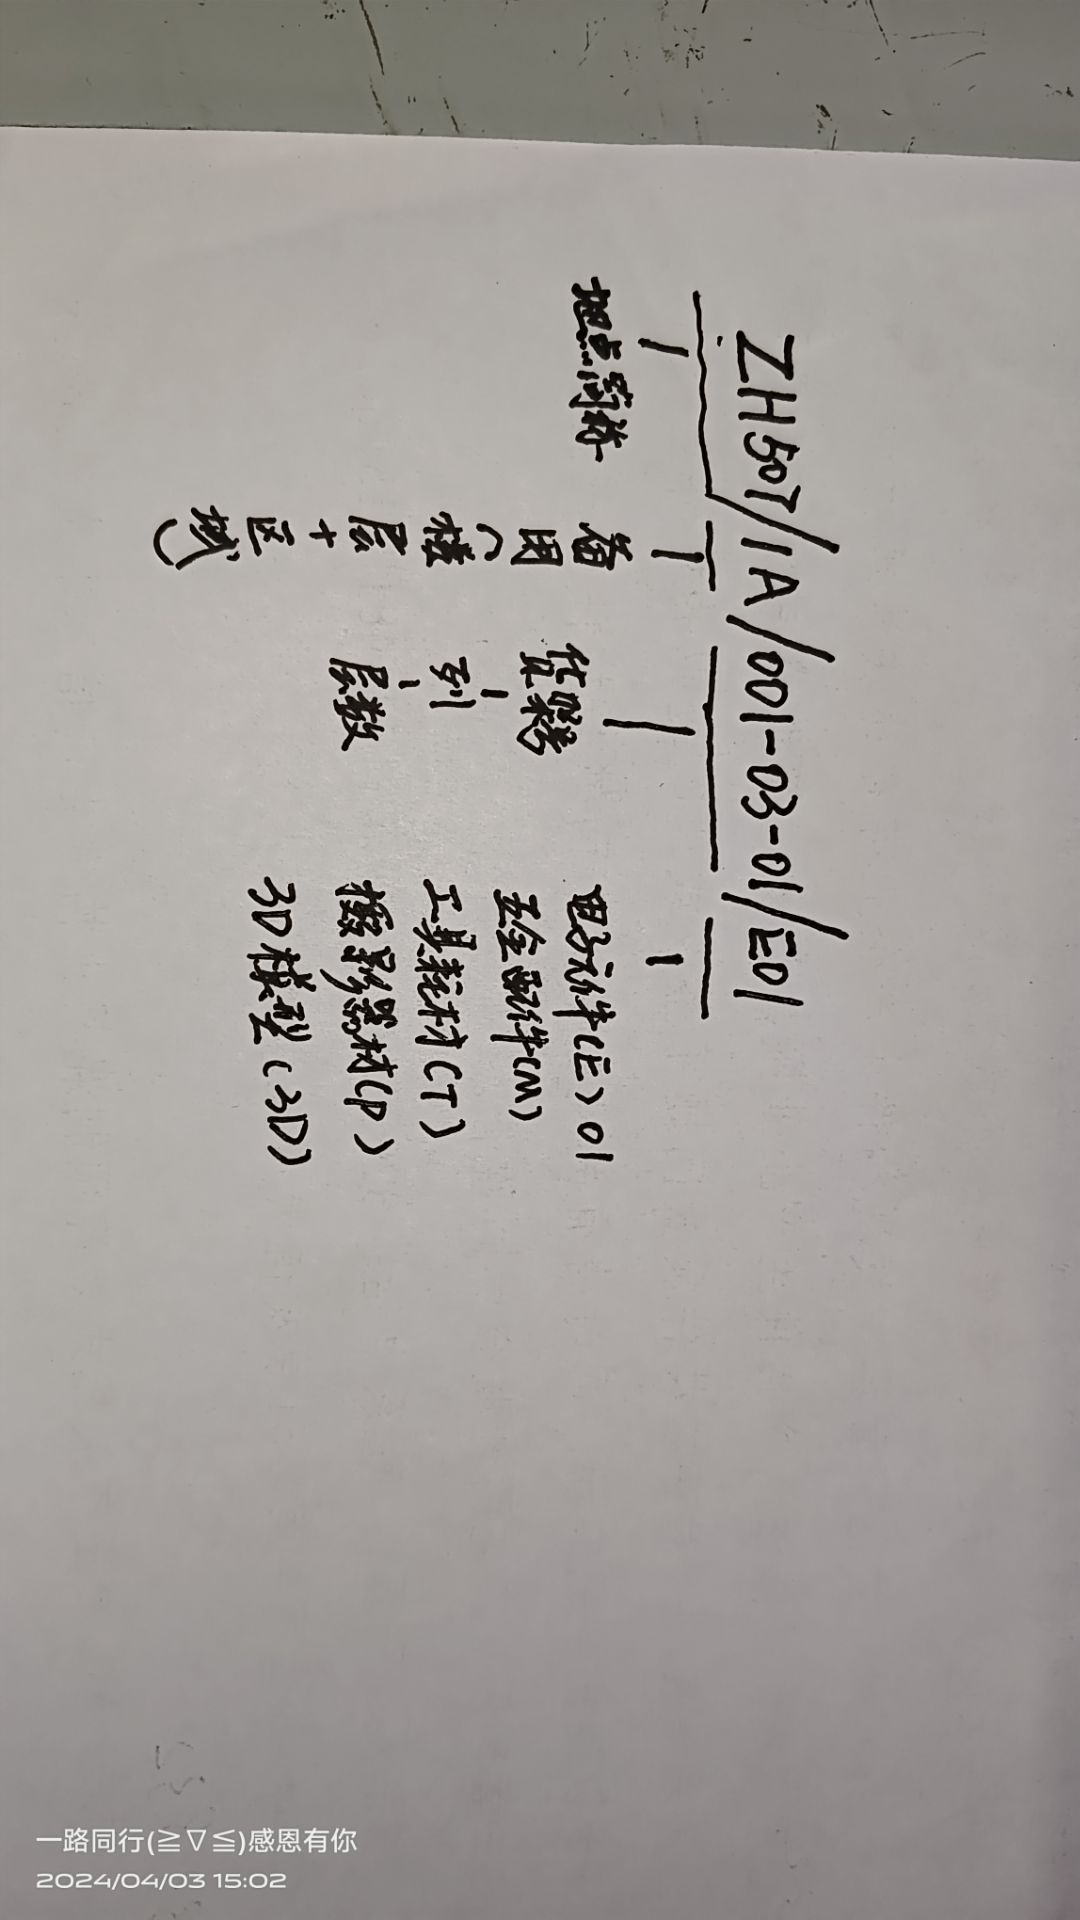 ZH50T/1A/001-03-01/E01
地点简称
备用(楼层+区域)
货架号
列
层数
电子元件(E)01
五金配件(M)
工具耗材(T)
摄影器材(P)
3D模型(3D)
一路同行(≧∇≦)感恩有你
2024/04/03 15:02